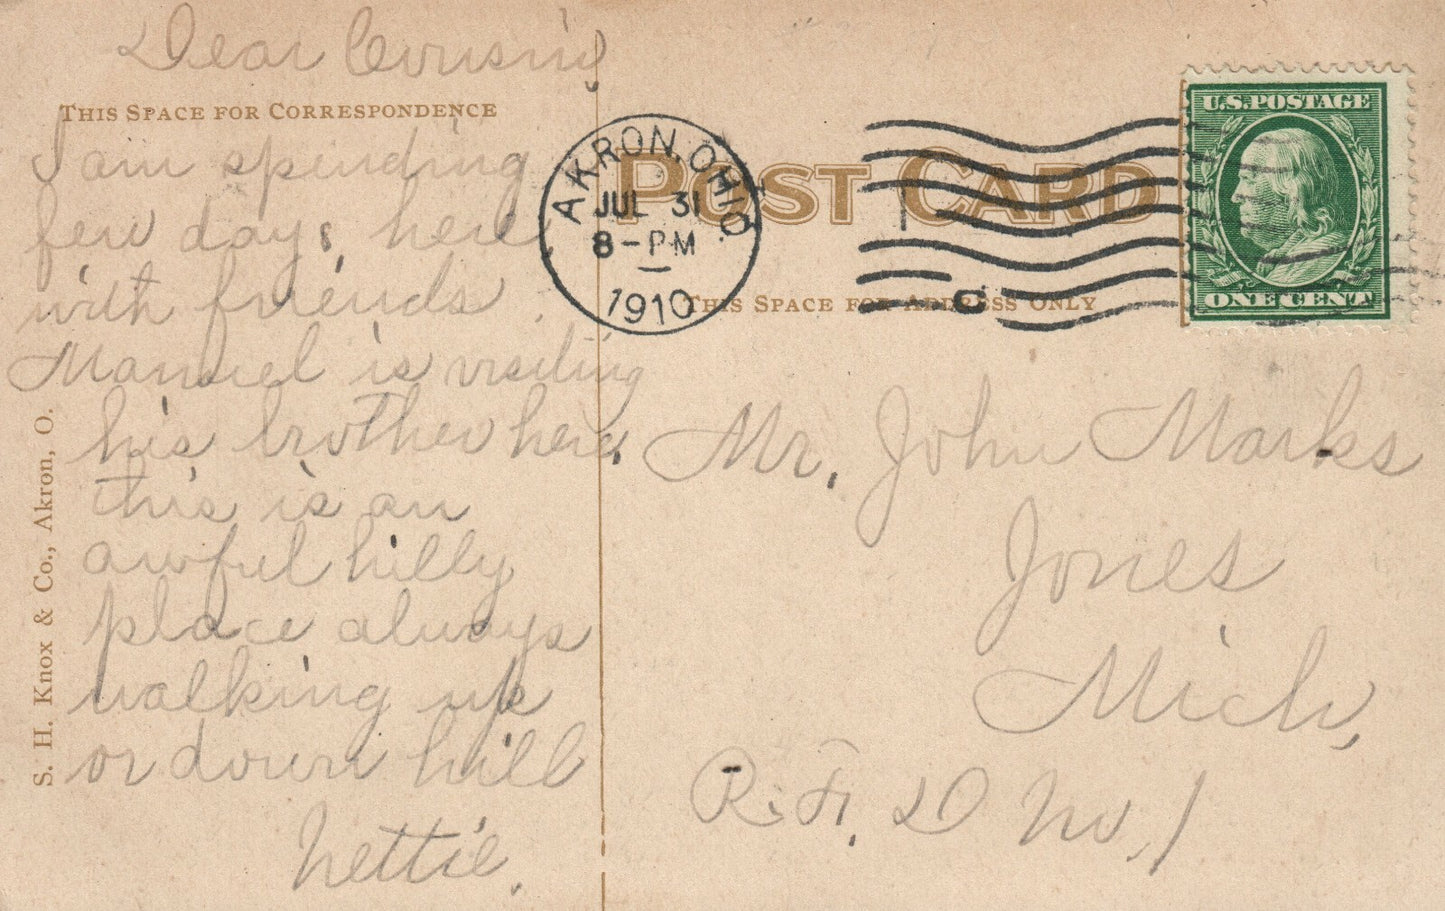 Dear Cousin,
THIS SPACE FOR CORRESPONDENCE
I am spending
few days here
with friends.
Manuel is visiting
his brother here,
this is an
awful hilly
place always
walking up
or down hill
Nettie.
S. H. Knox & Co., Akron, O.
AKRON, OHIO.
JUL 31
8-PM
1910
POST CARD
THIS SPACE FOR ADDRESS ONLY
U.S. POSTAGE
ONE CENT
Mr. John Marks
Jones
Mich,
R.F.D No. 1